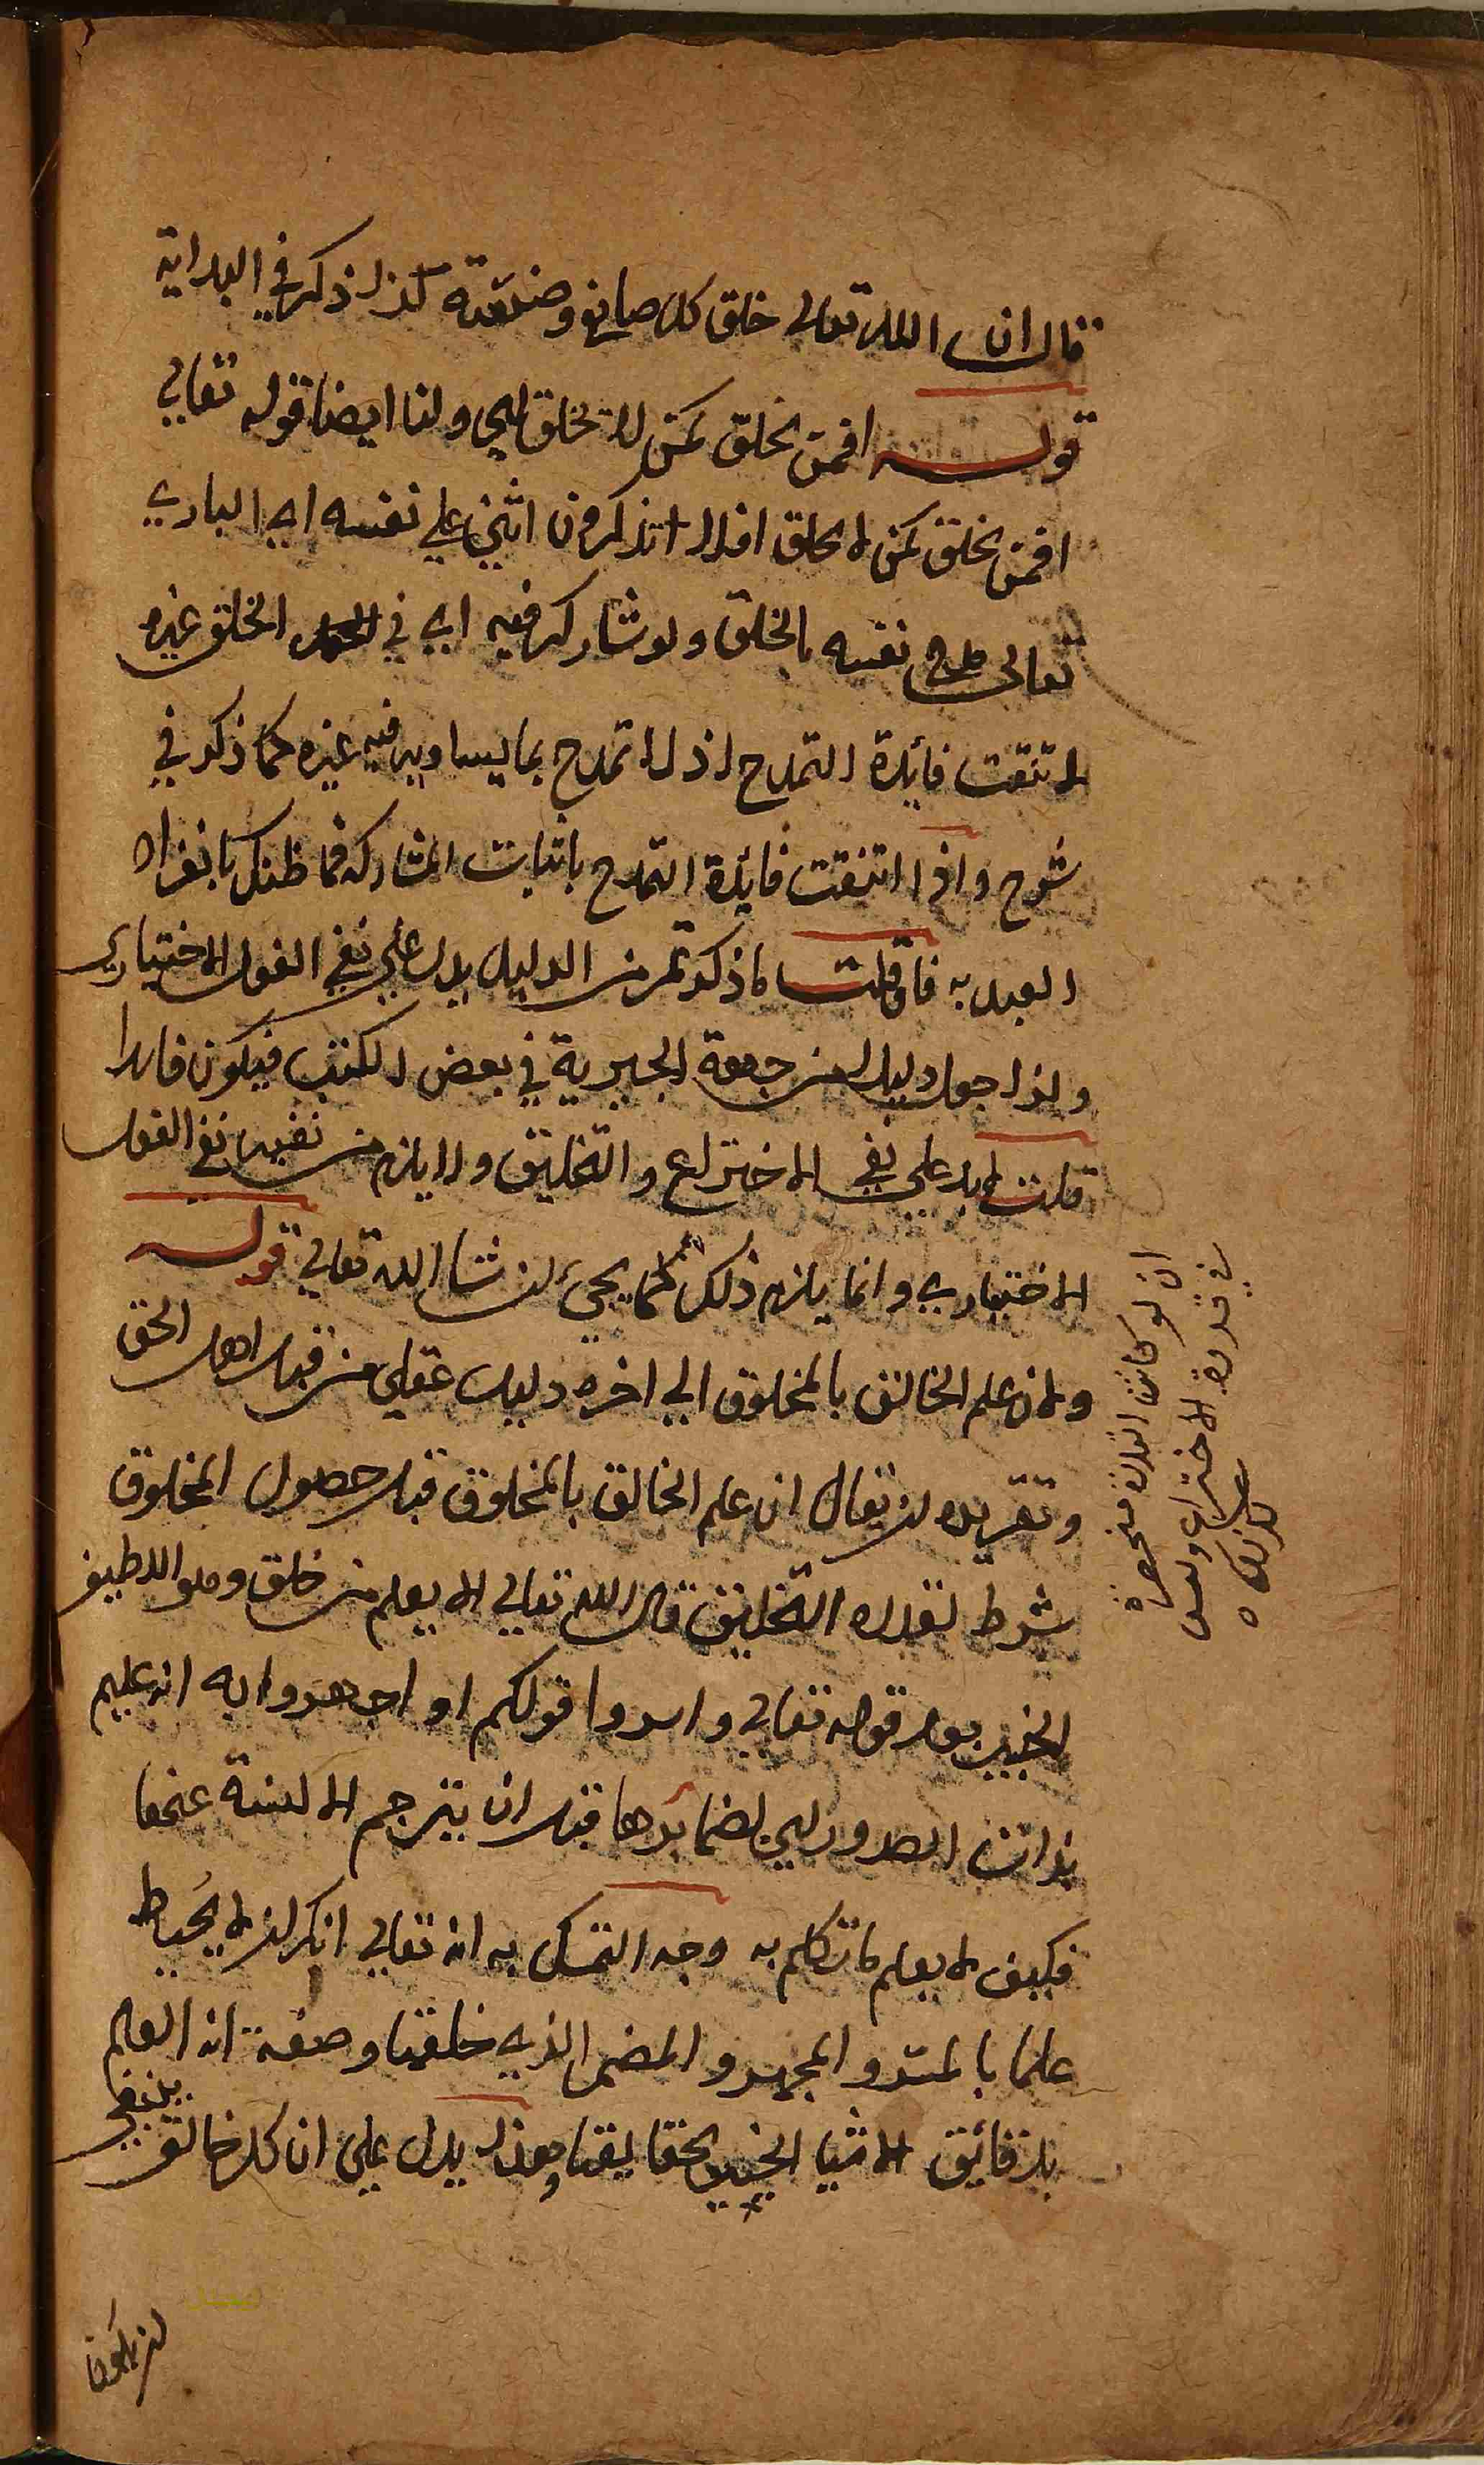 قال ان الله تعالى خلق كل صانع وصنعته كذا ذكر في البداية
قوله افمن يخلق كمن لا يخلق اي ولنا ايضا قوله تعالى
افمن يخلق كمن لا يخلق افلا تذكرون اثني على نفسه اي الباري
تعالى مدح نفسه بالخلق ولو شاركه فيه اي في الخلق غيره
لانتفت فائدة التمدح اذ لا تمدح بما يساويه فيه غيره كما ذكر في
شرح واذا انتفت فائدة التمدح باثبات المشاركة فما ظنك بانفراد
العبد به فان قلت ما ذكرتم من الدليل يدل على نفي الفعل الاختياري
ولذا جعل دليلا من جهة الجبرية في بعض الكتب فيكون فاسدا
قلت لا بل على نفي الاختراع والتخليق ولا يلزم من نفيه نفي الفعل
الاختياري وانما يلزم ذلك كما يجيئ ان شا الله تعالى قوله
ولان علم الخالق بالمخلوق الي اخره دليل عقلي من قبل اهل الحق
وتقريره ان يقال ان علم الخالق بالمخلوق قبل حصول المخلوق
شرط لقدرة التخليق قال الله تعالى الا يعلم من خلق وهو اللطيف
الخبير بعد قوله تعالى واسروا قولكم او اجهروا به انه عليم
بذات الصدور اي بضمائرها قبل ان يترجم الالسنة عنها
فكيف لا يعلم ما تكلم به وجه التمسك به انه تعالى انكر ان لا يحيط
علما بالمسر والمجهر والمضمر الذي خلقها وصفته انه العالم
بدقائق الاشيا الخبير بحقايقها وهذا يدل على ان كل خالق ينبغي
ان يكون
ان لو كانت القدرة منحصرة
في قدرة الاختراع وليس
كذلك